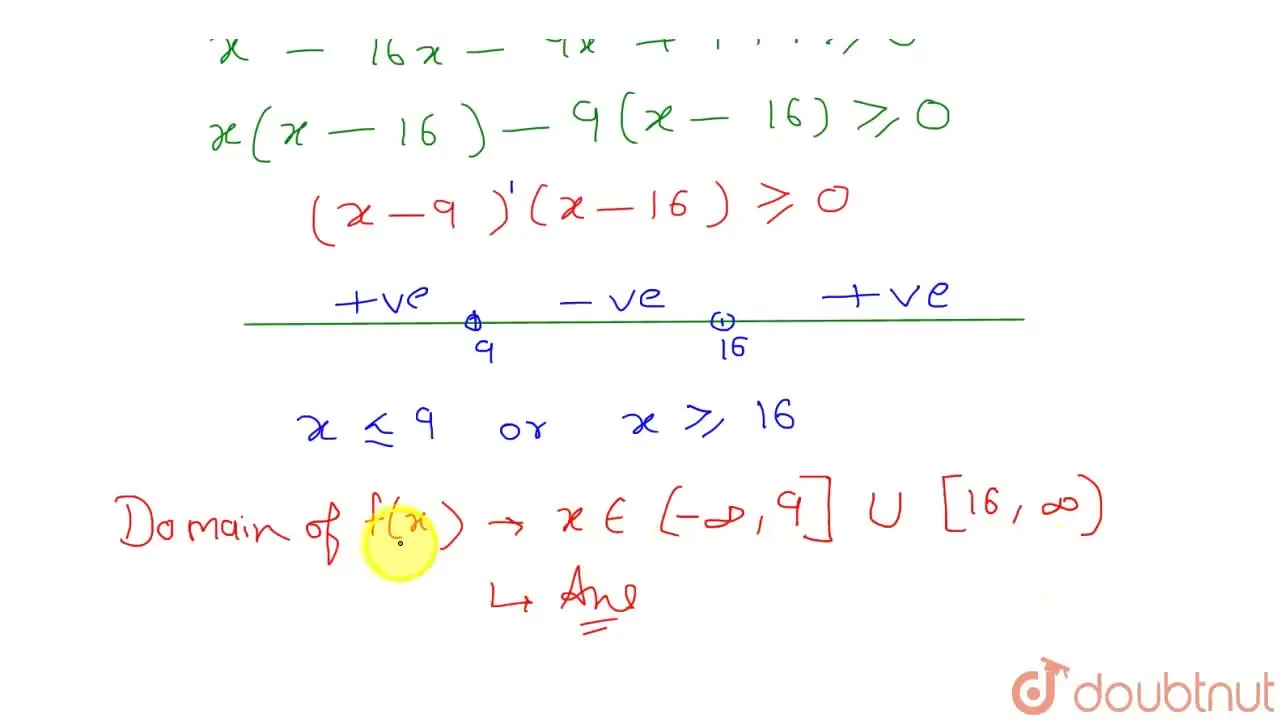 x - 16x - 9x +
x(x - 16) - 9(x - 16) ⩾ 0
(x - 9)'(x - 16) ⩾ 0
+ve - ve + ve
9 16
x ≤ 9 or x ⩾ 16
Domain of f(x) → x ∈ (-∞, 9] ∪ [16, ∞)
↳ Ans
doubtnut